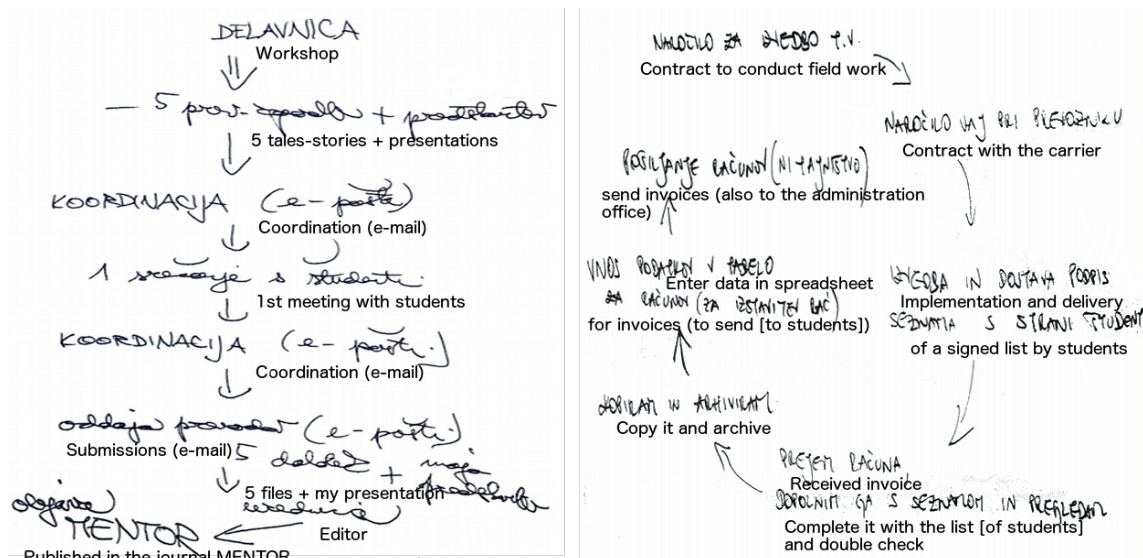 DELAVNICA
Workshop
5 tales-stories + presentations
KOORDINACIJA (e-pošta)
Coordination (e-mail)
1 srečanje s študenti
1st meeting with students
KOORDINACIJA (e-pošti)
Coordination (e-mail)
oddaja (e-pošti)
Submissions (e-mail)
5 datotek + moja
5 files + my presentation
Editor
objava
MENTOR
Published in the journal MENTOR
NAROČILO ZA IZVEDBO T.V.
Contract to conduct field work
NAROČILO VAJ PRI PREVOZNIKU
Contract with the carrier
IZVEDBA IN DOSTAVA PODPIS
Implementation and delivery
SEZNAMA S STRANI ŠTUDENT
of a signed list by students
PREJEM RAČUNA,
Received invoice
DOPOLNIM GA S SEZNAMOM IN PREGLEDAM
Complete it with the list [of students]
and double check
KOPIRAM IN ARHIVIRAM
Copy it and archive
VNOS PODATKOV V TABELO
Enter data in spreadsheet
ZA RAČUNOV (ZA IZSTAVITEV RAČ)
for invoices (to send [to students])
POŠILJANJE RAČUNOV (NI TAJNIŠTVO)
send invoices (also to the administration
office)